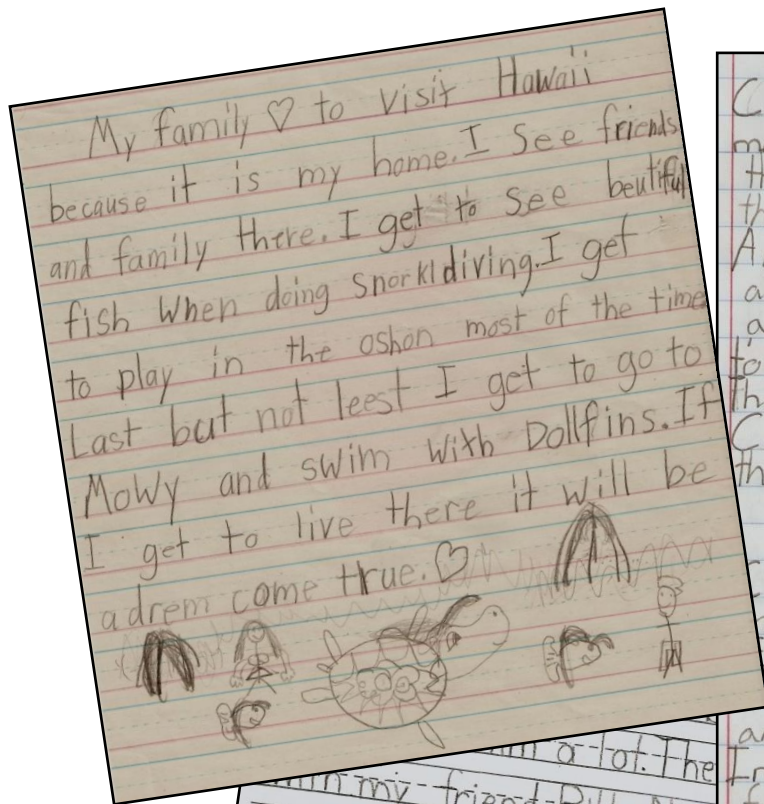 My family ♡ to visit Hawaii
because it is my home. I see friends
and family there. I get to see beutiful
fish when doing snorkldiving. I get
to play in the oshon most of the time
Last but not leest I get to go to
Mowy and swim with Dollfins. If
I get to live there it will be
a drem come true. ♡
a lot. The
in my friend